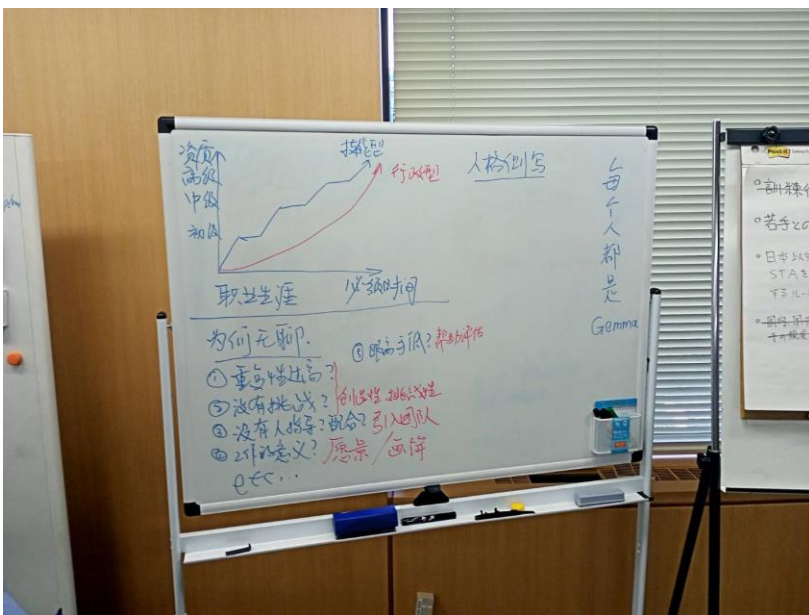 资质
高级
中级
初级
技能型
行政型
职业生涯
必须时间
人格侧写
每个人都是
Gemma
为何无聊.
① 重复性过高?
② 没有挑战?
创造性 挑战性
③ 没有人指导?配合?
引入团队
④ 工作的意义?
愿景/画饼
⑤ 眼高手低?
帮助评估
etc...
Post-it
訓練
若手との
日本以
STAを